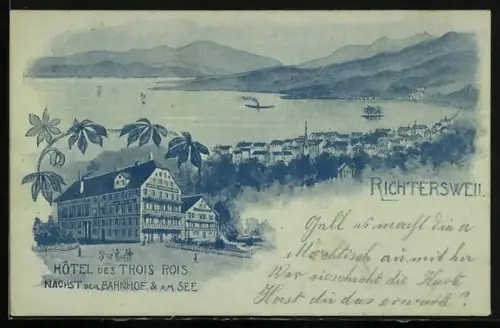 RICHTERSWEIL
HÔTEL DES TROIS ROIS
NÄCHST DEM BAHNHOF & AM SEE
Gell es macht die
Möchtisch an mit ihr
Wer sieschickt die Karte
Hast du das erwartet?